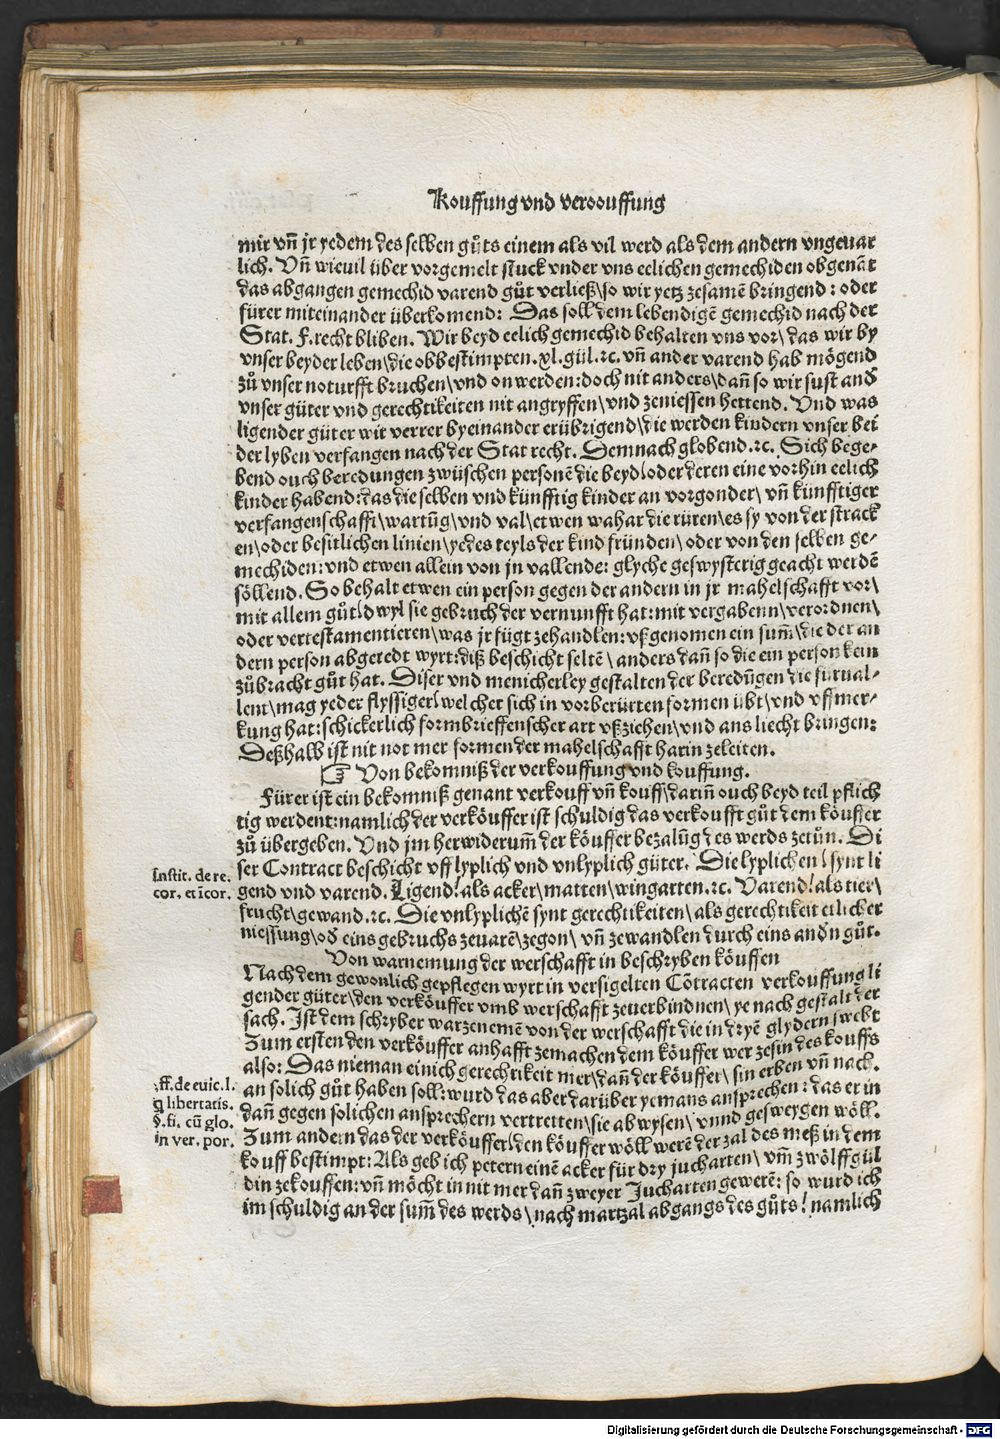 Kouffung vnd verkouffung
mir vn̄ jr yedem des selben gůts einem als vil werd als dem andern vngeuar
lich. Vn̄ wieuil über vorgemelt stuck vnder vns eelichen gemechiden obgenāt
das abgangen gemechid varend gůt verließ\so wir yetz zesamē bringend: oder
fürer miteinander überkomend: Das soll dem lebendigē gemechid nach der
Stat. F. recht bliben. Wir beyd eelich gemechid behalten vns vor\das wir by
vnser beyder leben\die obbestimpten. xl. gül. ꝛc. vn̄ ander varend hab mögend
zů vnser noturfft bruchen\vnd on werden: doch nit anders\dan̄ so wir sust and̄
vnser güter vnd gerechtikeiten nit angryffen\vnd zeniessen hettend. Vnd was
ligender güter wir verrer byeinander erübrigend\die werden kindern vnser bei
der lyben verfangen nach der Stat recht. Demnach globend. ꝛc. Sich bege⸗
bend ouch beredungen zwüschen personē die beyd\oder deren eine vorhin eelich
kinder habend: das die selben vnd künfftig kinder an vorgonder\vn̄ künfftiger
verfangenschafft\wartūg\vnd val\etwen wahar die rüren\es sy von der strack
en\oder besitlichen linien\yedes teyls der kind fründen\oder von den selben ge⸗
mechiden: vnd etwen allein von jn vallende: glyche geswysterig geacht werdē
söllend. So behalt etwen ein person gegen der andern in jr mahelschafft vor\
mit allem gůt\dwyl sie gebruch der vernunfft hat: mit vergabenn\verordnen\
oder vertestamentieren\was jr fügt zehandlen: vßgenomen ein sum̄\die der an
dern person abgeredt wyrt: diß beschicht seltē\anders dan̄ so die ein person kein
zůbracht gůt hat. Diser vnd menicherley gestalten der beredūgen die fürual⸗
lent\mag yeder flyssiger\welcher sich in vorberürten formen übt\vnd vffmer⸗
kung hat: schickerlich formbrieffenscher art vßziehen\vnd ans liecht bringen:
Deßhalb ist nit not mer formen der mahelschafft harin zeleiten.
☞ Von bekomniß der verkouffung vnd kouffung.
Fürer ist ein bekomniß genant verkouff vn̄ kouff\darin̄ ouch beyd teil pflich
tig werdent: namlich der verköuffer ist schuldig das verkoufft gůt dem köuffer
zů übergeben. Vnd jm herwiderum̄ der köuffer bezalūg des werds zetůn. Di
ser Contract beschicht vff lyplich vnd vnlyplich güter. Die lyplichen\synt li
Instit. de re.
cor. et īcor.
gend vnd varend. Ligend\als acker\matten\wingarten. ꝛc. Varend\als tier\
frucht\gewand. ꝛc. Die vnlyplichē synt gerechtikeiten\als gerechtikeit etlicher
niessung\od̄ eins gebruchs zeuarē\zegon\vn̄ zewandlen durch eins and̄n gůt.
Von warnemung der werschafft in beschryben köuffen
Nach dem gewonlich gepflegen wyrt in versigelten Cōtracten verkouffung li
gender güter\den verköuffer vmb werschafft zeuerbindnen\ye nach gestalt der
sach. Ist dem schryber warzenemē von der werschafft die in dryē glydern swebt
Zum ersten den verköuffer anhafft zemachen dem köuffer wer zesin des kouffs
also: Das nieman einich gerechtikeit mer\dan̄ der köuffer\sin erben vn̄ nach.
ff. de euic. l.
q libertatis.
§. fi. cū glo.
in ver. por.
an solich gůt haben soll: wurd das aber darüber yemans ansprechen: das er in
dan̄ gegen solichen ansprechern vertretten\sie abwysen\vnnd gesweygen wöll.
Zum andern das der verköuffer\den köuffer wöll werē der zal des meß in dem
kouff bestimpt: Als geb ich petern einē acker für dry jucharten\vm̄ zwölff gül
din zekouffen: vn̄ möcht in nit mer dan̄ zweyer Jucharten gewerē: so wurd ich
im schuldig an der sum̄ des werds\nach martzal abgangs des gůts\namlich
Digitalisierung gefördert durch die Deutsche Forschungsgemeinschaft - DFG